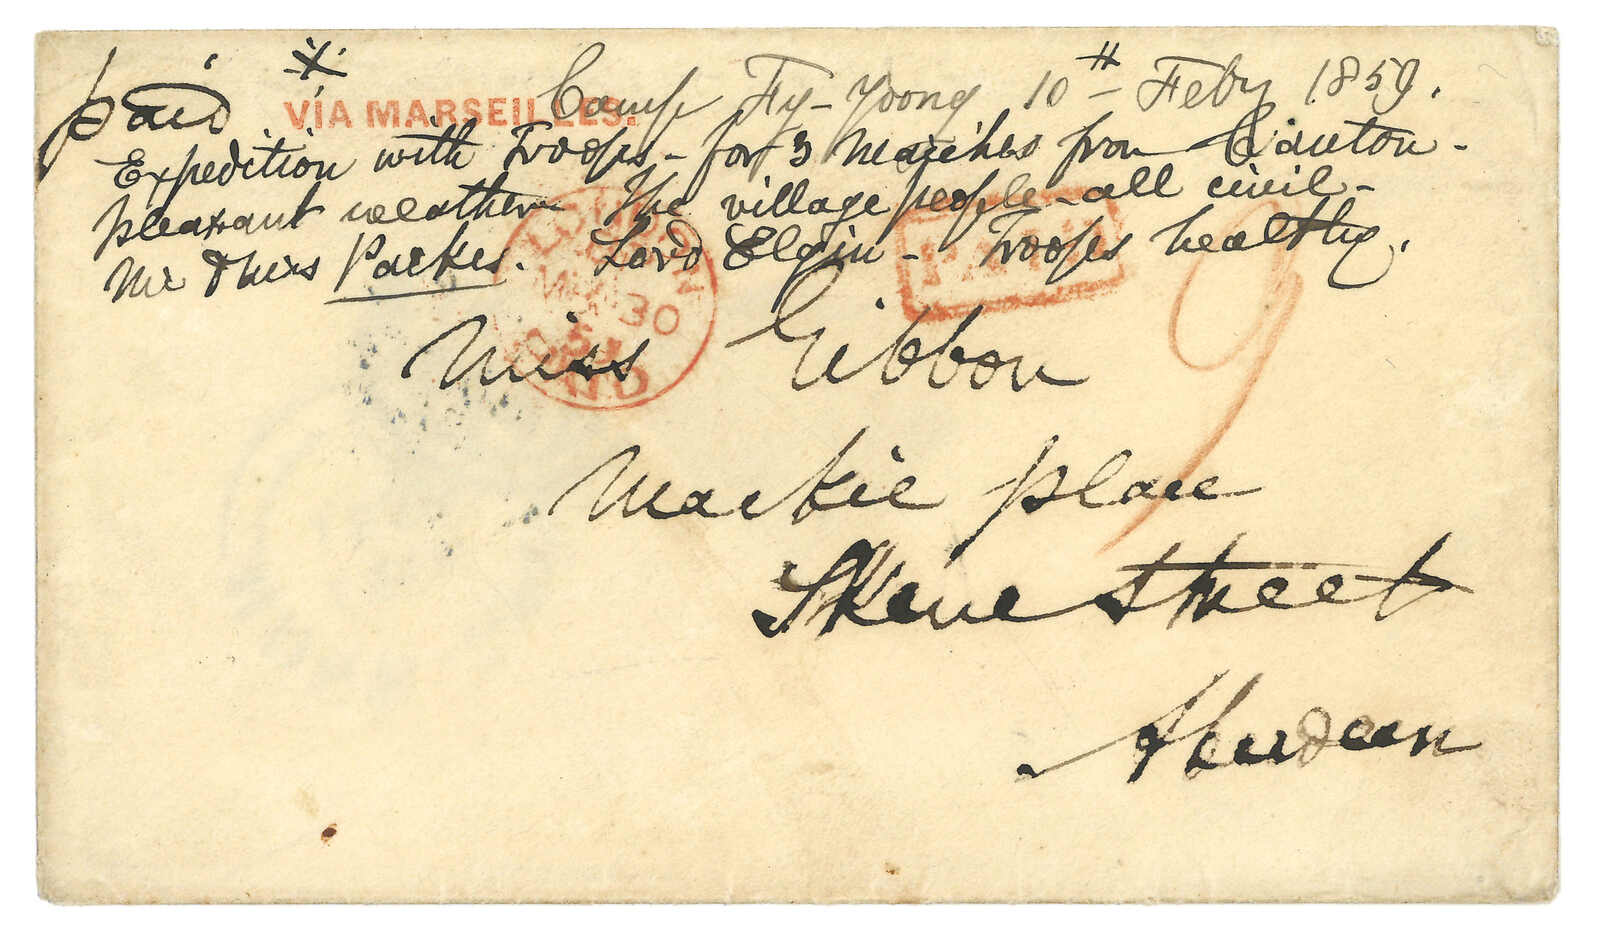 paid VIA MARSEILLES. Camp Fy-Yoong 10th Feby 1859.
Expedition with Troops - for 3 Marches from Canton -
pleasant weather The village people - all civil -
Mr & Mrs Parkes. Lord Elgin - Troops healthy.
LONDON
PAID
30
Miss Gibbon
9
Mackie place
Skene Street
Aberdeen